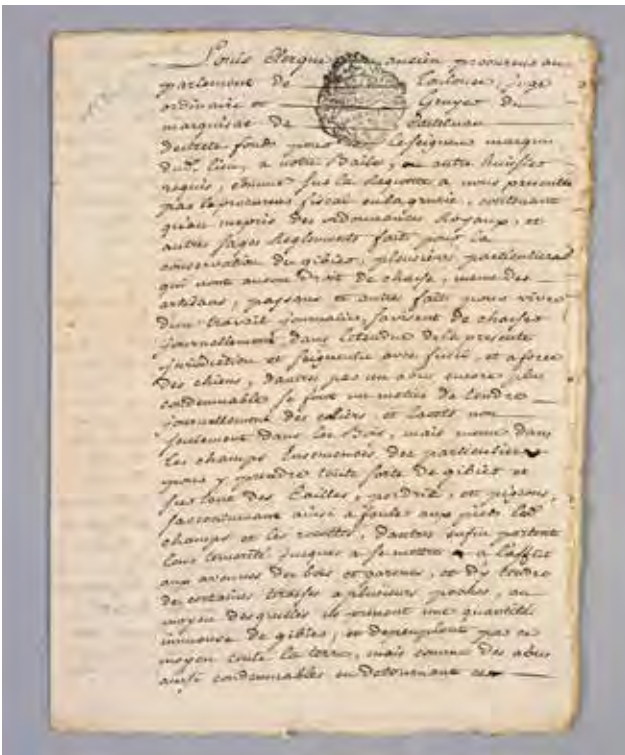 Louis Clergue ancien procureur au
parlement de Toulouse, juge
ordinaire et Gruyer du
marquisat de
decrete fonds pour le seigneur marquis
dud. lieu, a notre Baile, ou autre huissier
requis, comme sur la Requette a nous presentée
par le procureur fiscal en la gruerie, contenant
qu'au mepris des ordonnances Royaux, et
autres sages Reglements faits pour la
conservation du gibier, plusieurs particuliers
qui n'ont aucun droit de chasse, meme des
artisans, paysans et autres faits pour vivre
d'un travail journalier, s'avisent de chasser
journellement dans l'etendue de la presente
jurisdiction et seigneurie avec fusils, et a force
des chiens, d'autres par un abus encore plus
condemnable se font un metier de tendre
journellement des coliers et lacets non
seulement dans les Bois, mais meme dans
les champs Ensemencés des particuliers
pour y prendre toute sorte de gibier et
sur tout des Cailles, perdrix, et pigeons,
s'accoutumant ainsi a fouler aux pieds les
champs et les recoltes, d'autres enfin portent
leur temerité jusques a se mettre a l'affut
aux avenues des bois et garenes, et d'y tendre
de certaines tirasses a plusieurs poches, au
moyen desquelles ils prenent une quantité
immense de gibier, et depeuplent par ce
moyen toute la terre, mais comme des abus
aussi condemnables en detournant ces